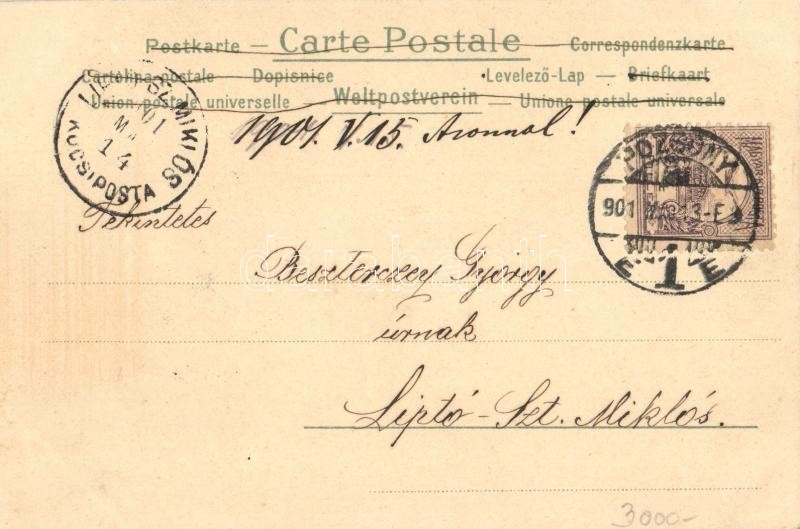 Postkarte – Carte Postale – Correspondenzkarte
Cartolina postale – Dopisnice – Levelező-Lap – Briefkaart
Union postale universelle – Weltpostverein – Unione postale universale
1901. V. 15. Azonnal!
SZ. MIKLÓS
01
MÁ
14
KOCSIPOSTA
POZSONY
901 MÁJ 13-F
1
Tekintetes
Beszterczey György
úrnak
Liptó-Szt. Miklós.
3000-